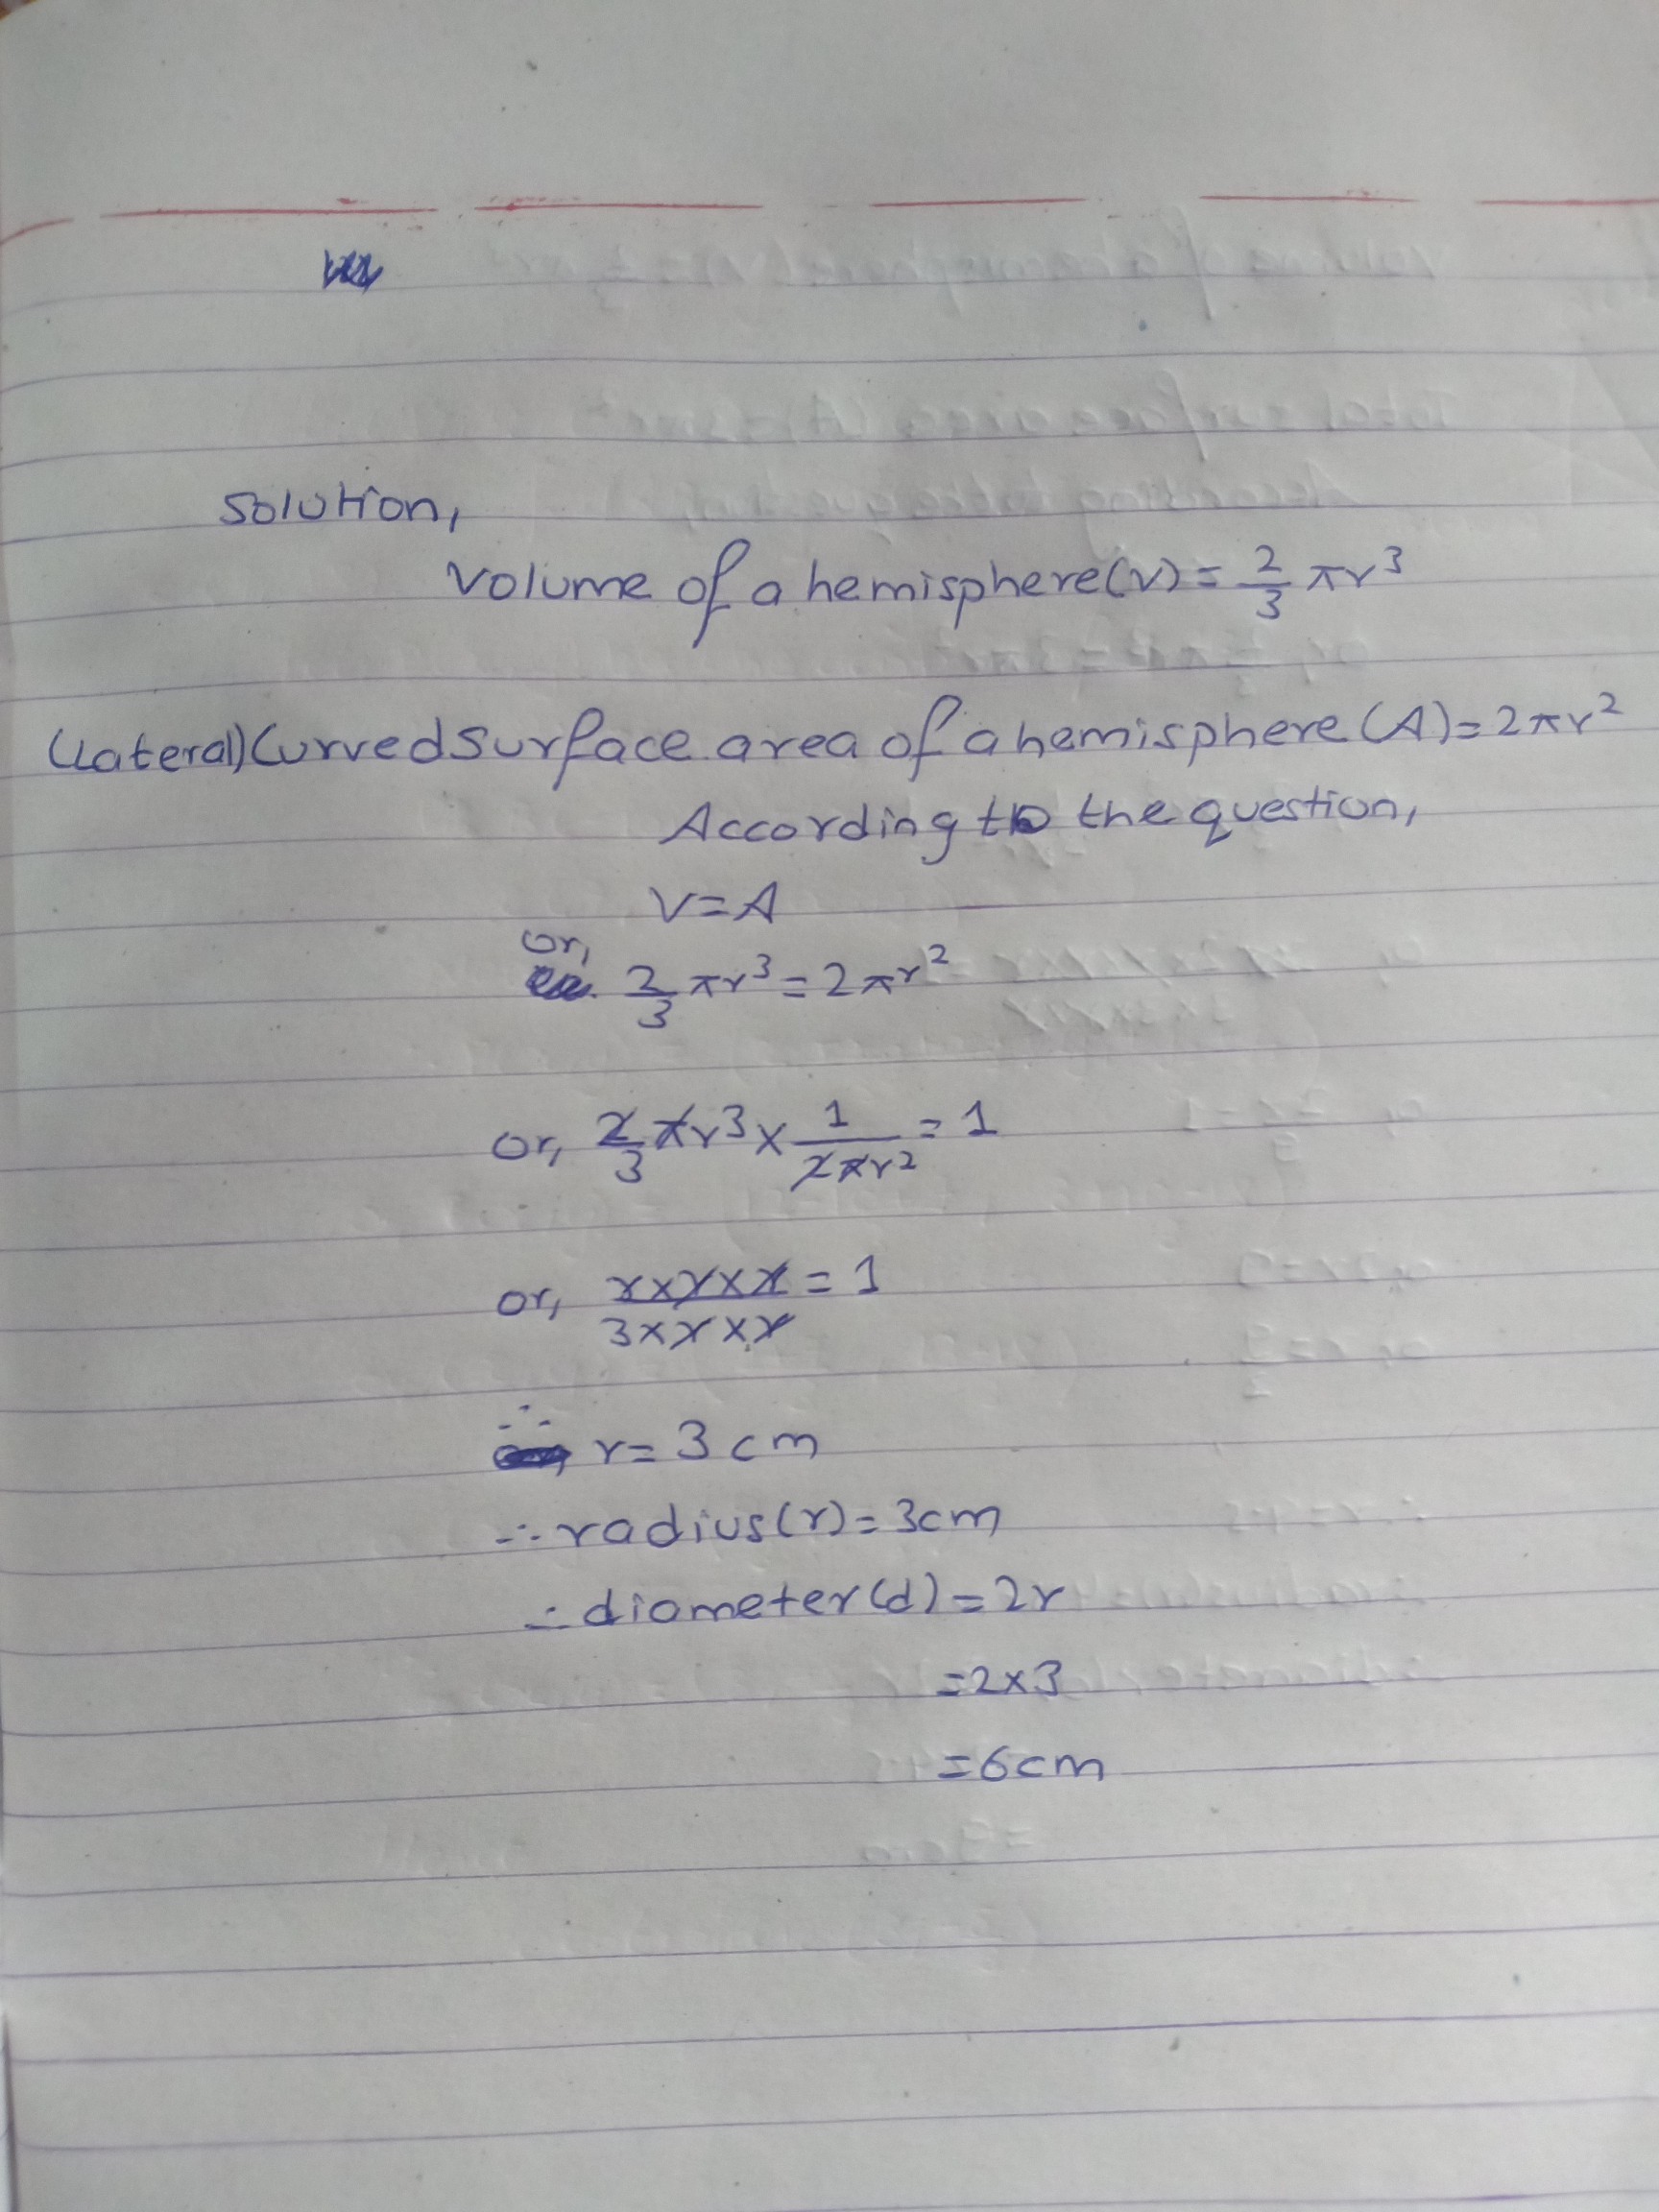 solution,
Volume of a hemisphere(V) = 2/3 πr³
(Lateral) Curved surface area of a hemisphere (A) = 2πr²
According to the question,
V = A
or, 2/3 πr³ = 2πr²
or, 2/3 πr³ × 1/2πr² = 1
or, r×r×r/3×r×r = 1
∴ r = 3 cm
∴ radius(r) = 3cm
∴ diameter(d) = 2r
= 2×3
= 6cm